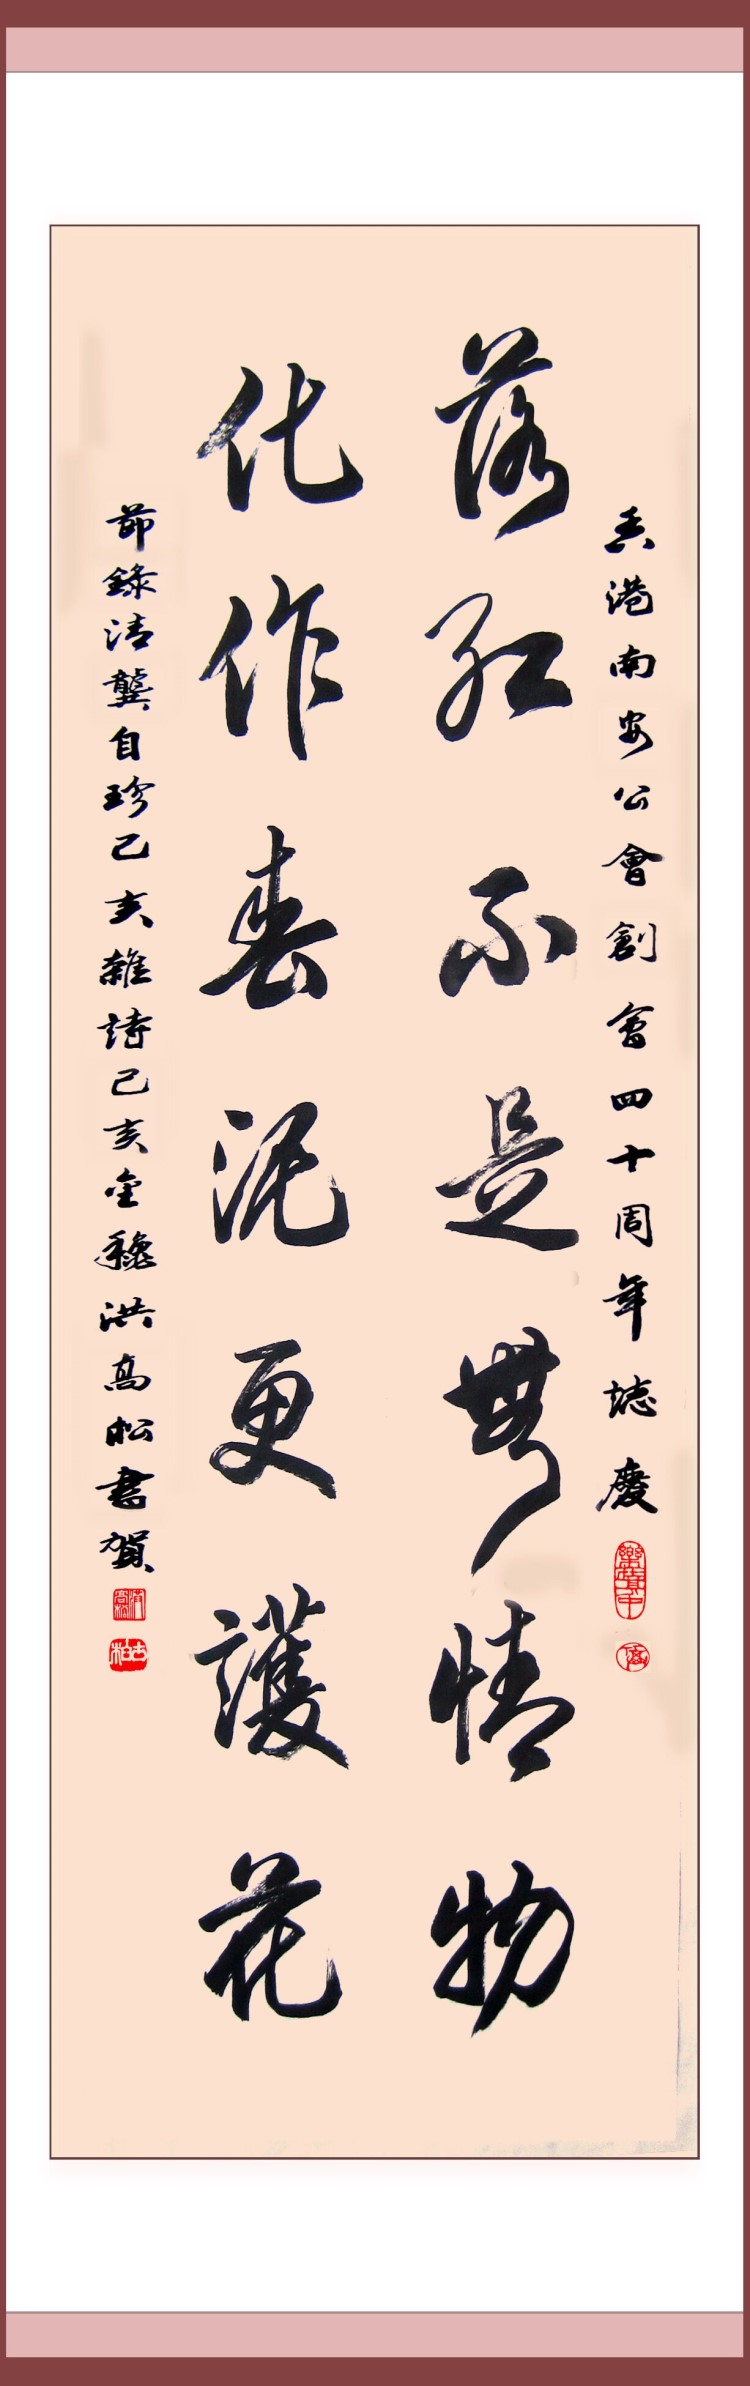 香港南安公會創會四十周年誌慶
落紅不是無情物
化作春泥更護花
節錄清龔自珍己亥雜詩己亥金穐洪高松書賀